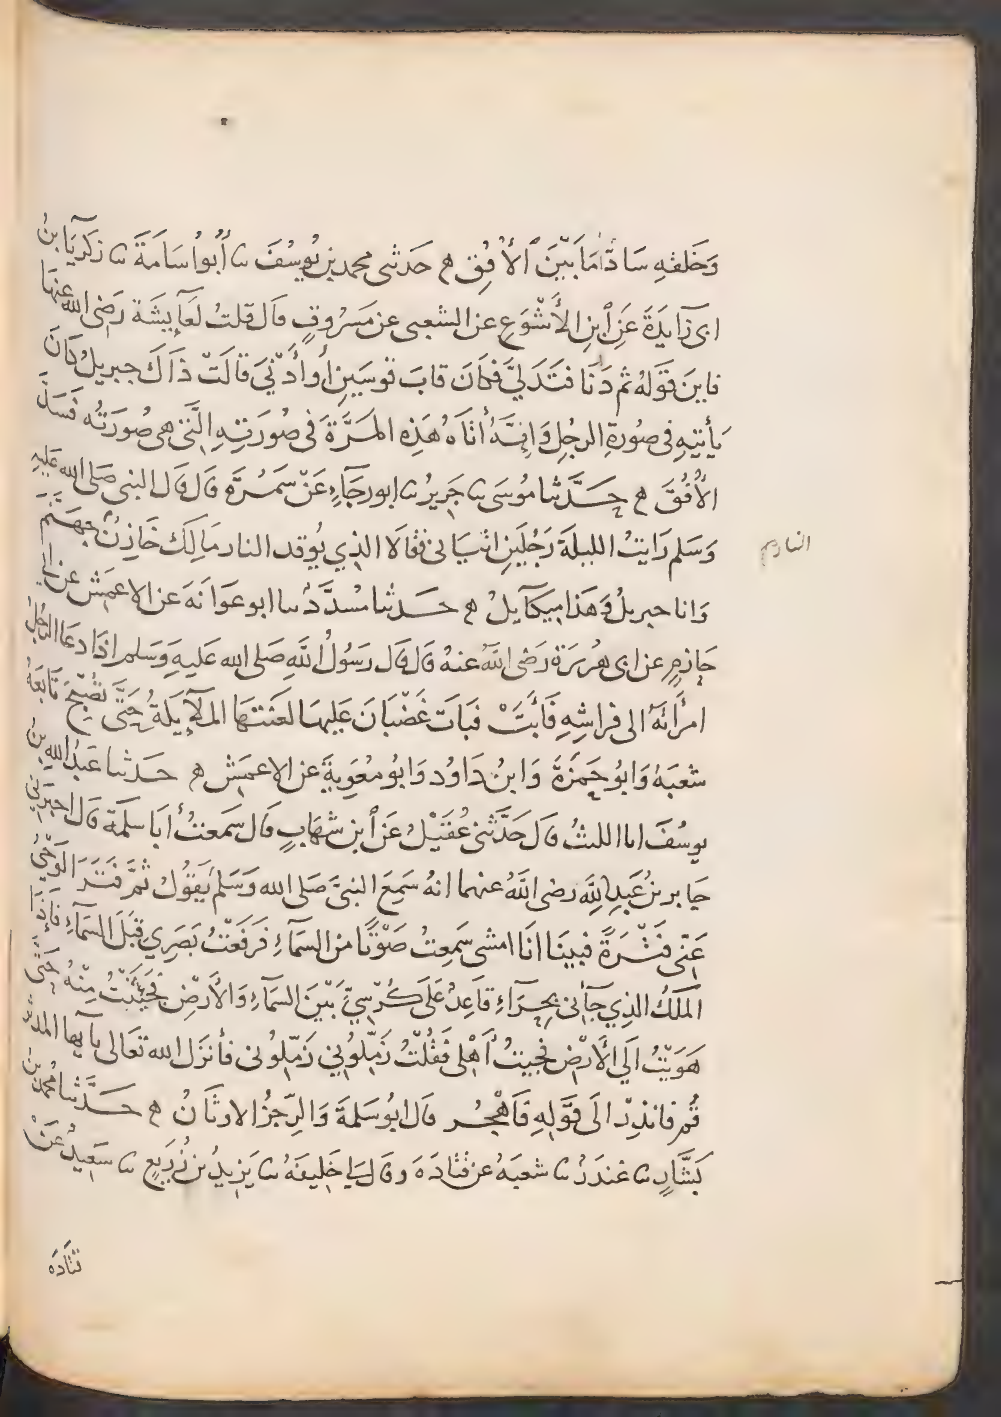 وَخَلقهِ سَادًّا مَا بَيْنَ ٱلأُفُقِ ھ حَدثنى محمد بن يُوسُفَ ثنا أَبُو أُسَامَةَ ثنا زكَرِيَا بنُ
ابى زَايدَةَ عَنِ ٱبنِ الأَشْوَعِ عن الشعبى عن مَسرُوقٍ قال قلتُ لعَآيشَة رَضى الله عنها
فاينَ قَولهُ ثم دَنَا فتَدَلىَّ فكَانَ قابَ قوسَينِ أَوأَدْنىَ قالَتْ ذَاكَ جبريلُ كانَ
يَأتيهِ فى صُورَةِ الرجُلِ وَإنَّهُ أتَاهُ هَذِهِ المَرَّةَ فى صُورَتهِ الَّتى هى صُورَتُه فَسَدَّ
الأُفُقَ ھ حَدَّثنا مُوسَى ثنا جَرِيرُ ثنا ابو رَجَآءِ عَنْ سَمُرَةَ قال قال النبى صَلى الله عَليهِ
وَسَلم رَايتُ الليلَةَ رَجُلَينِ اتيَانى فقالا الذِي يُوقد النار مَالِك خَازنُ جَهَنَّم
وَانا جبريلُ وَهَذا مِيكَآيلُ ھ حَدثنا مُسدَّدُ ثنا ابو عوَانَهَ عن الاعمَش عن ابى
حَازمٍ عن ابى هُريرَة رَضى اللَّهُ عنهُ قال قال رَسُولُ اللَّهِ صَلى الله عَليهِ وَسَلم اذَا دعَا الرجُلُ
امرأتَهُ الى فراشِهِ فَأَبَتْ فبَاتَ غَضْبَانَ عَليهَا لعَنَتهَا المَلآيِكَةُ حَتَّى تصْبِحَ تَابَعَهُ
شعبَهُ وَابُو حَمزَةَ وَابنُ دَاوُد وَابُو مُعَوِيةَ عن الاعمَش ھ حَدثنا عَبدُ الله بنُ
يوسُفَ انا الليثُ قال حَدَّثنى عُقَيْلُ عَن ٱبن شهَابٍ قال سَمعتُ أبَا سلَمَةَ قال اخبرَنى
جَابر بنُ عَبدِ اللَّهِ رضى اللَّهُ عنهما انهُ سَمِعَ النبىَّ صَلى الله وَسَلمَ يَقوُلُ ثمَّ فَتَرَ الوَحْىُ
عَنّى فَتْرَةً فبينَا انَا امشى سَمِعتُ صَوْتًا من السمَآءِ فَرَفَعْتُ بَصَرِي قِبَلَ السمَآءِ فإذَا
المَلَكُ الذِي جَآنى بِحِرَآءٍ قاعِدُ عَلىَ كُرْسِيٍّ بَيْنَ السمَآءِ وَالأَرْضِ فجُئِثْتُ مِنْهُ حَتَّى
هَوَيْتُ إِلَي الأَرْضِ فجيتُ أَهْلى فَقُلْتُ زَمِّلُونِي زَمِّلوُنى فأنزَلَ الله تعَالى يآيها المدثر
قُم فانذِرْ الىَ قَوْلِهِ فَاهْجُر قال ابُو سلمَةَ وَالرّجزُ الاوثَانُ ھ حَدَّثنا مُحمد بن
بَشَّارٍ ثنا غندَرُ ثنا شعبَهُ عن قتادَهَ وقال لي خَليفَهُ ثنا يَزِيدُ بن زُرَيعٍ ثنا سَعِيدُ عَنْ
قتادَه